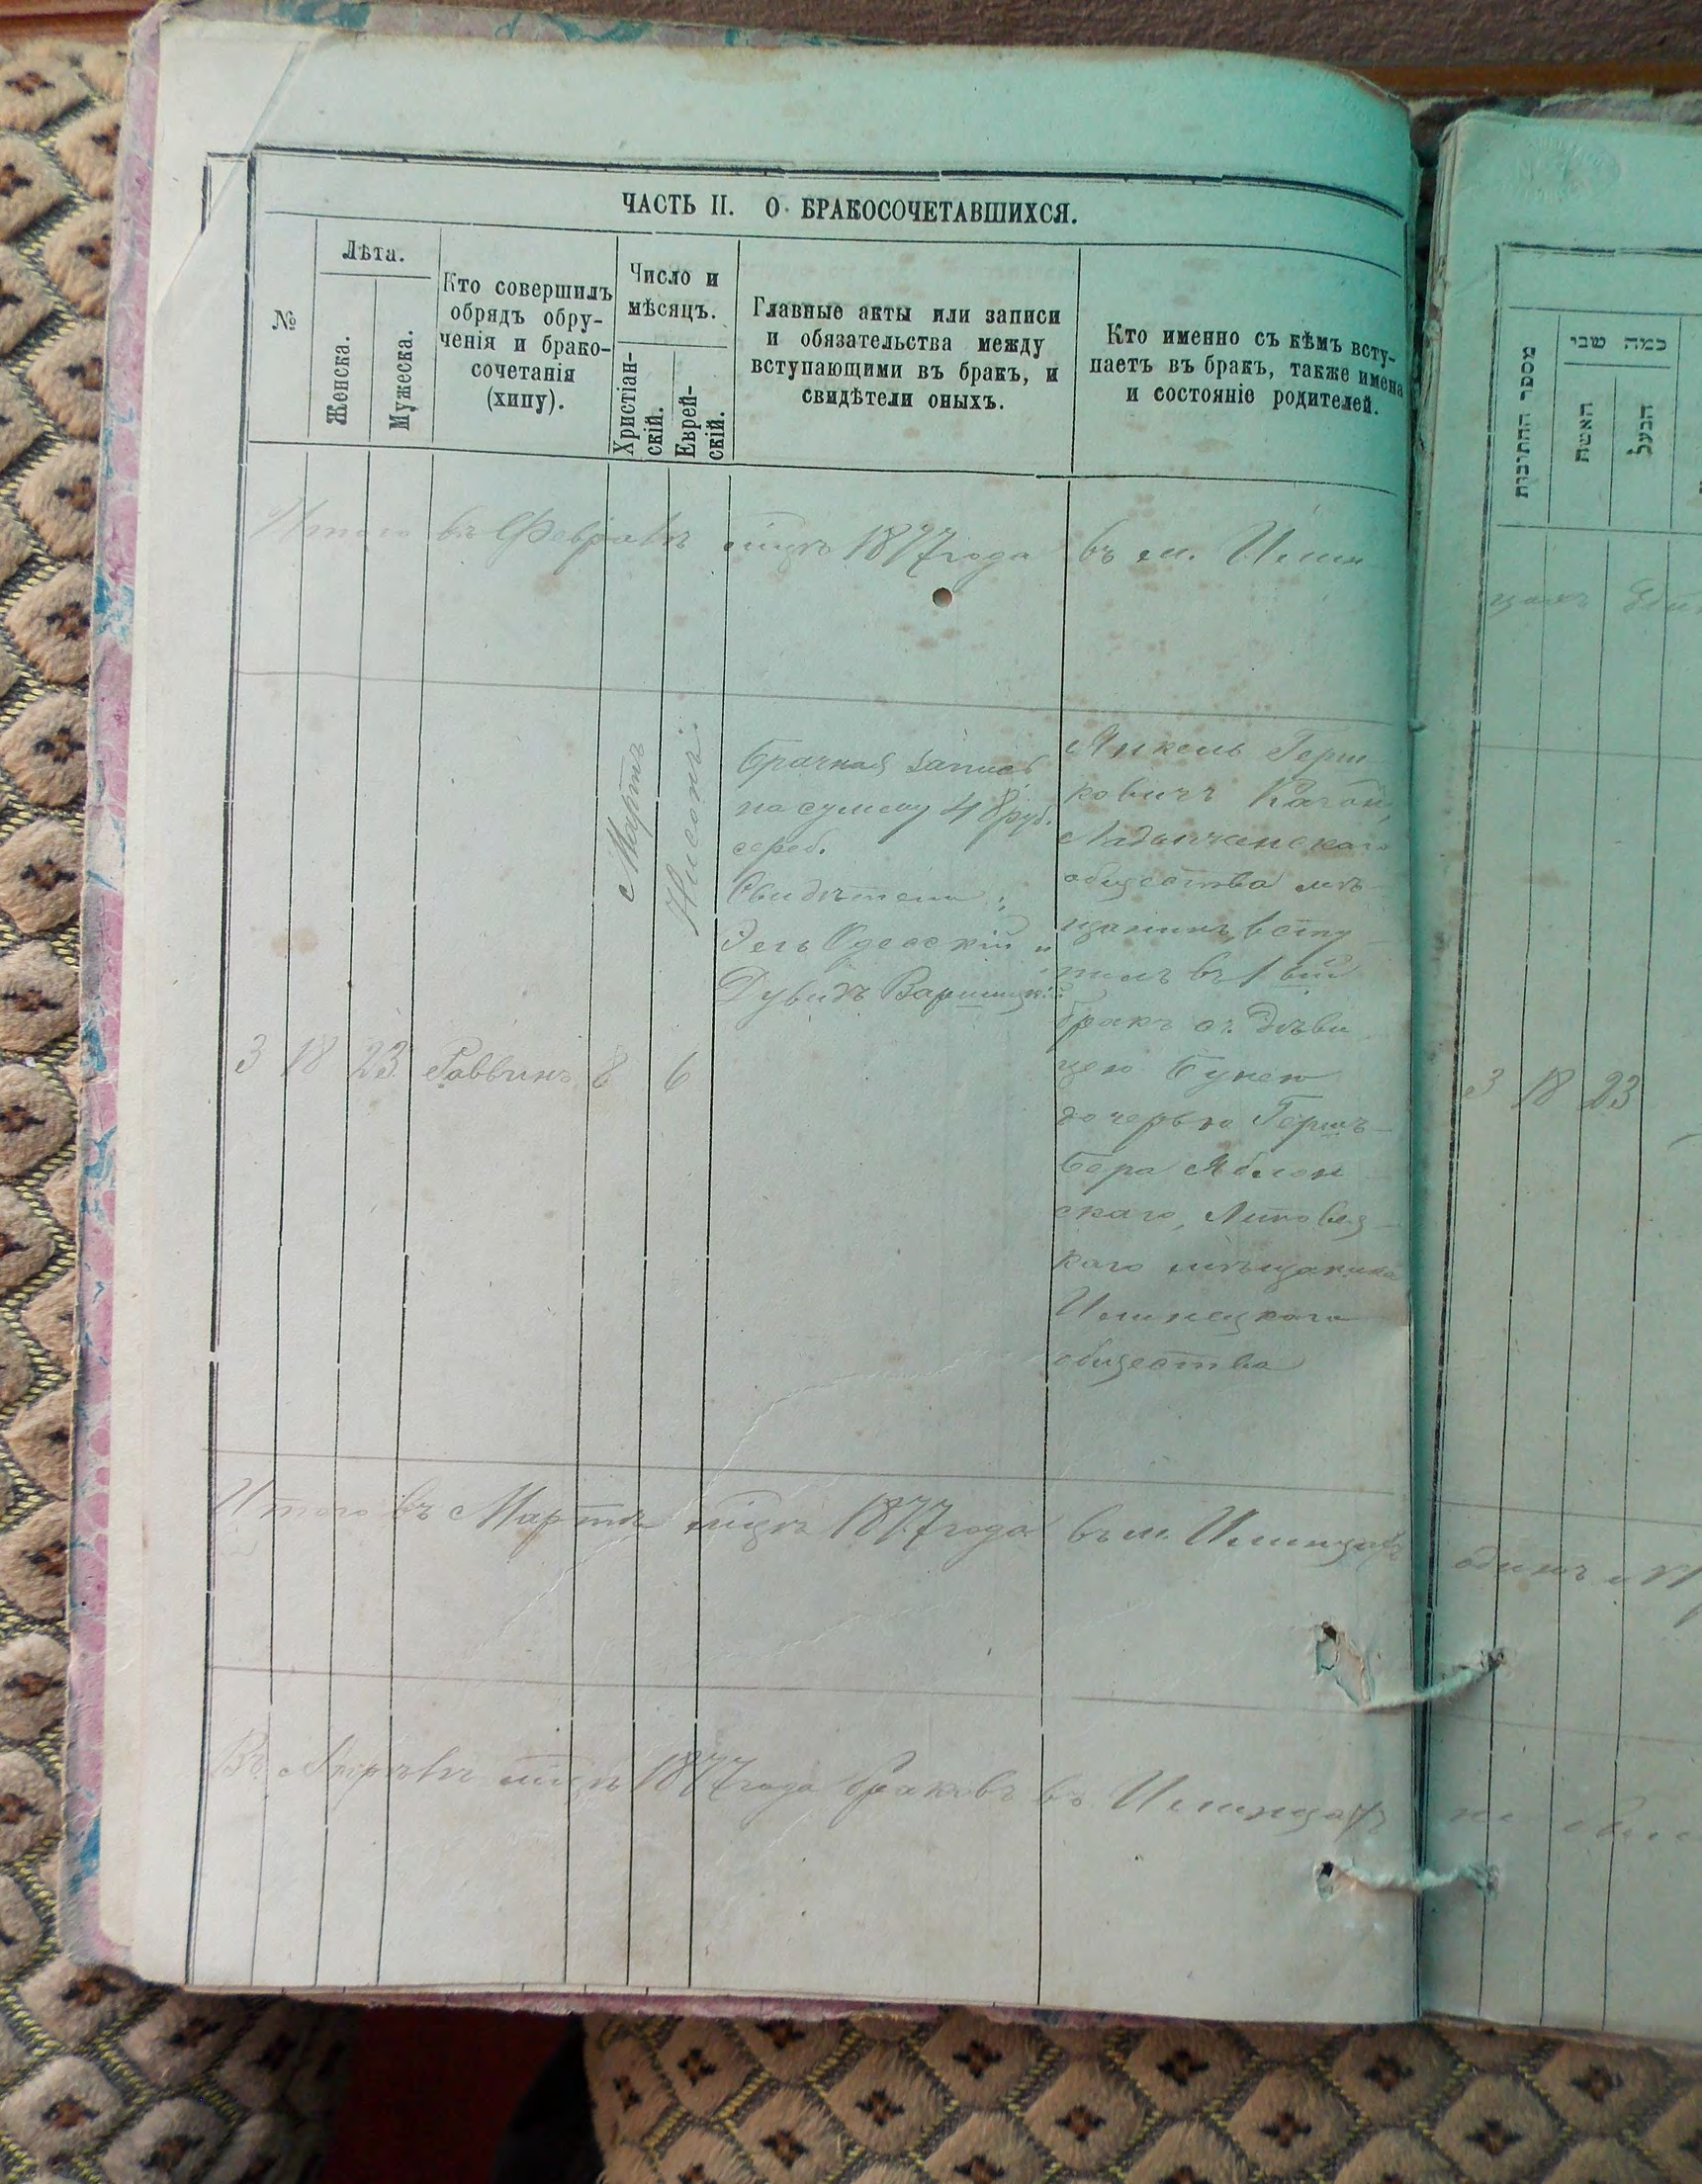 ЧАСТЬ II. О БРАКОСОЧЕТАВШИХСЯ.
№
Лѣта.
Женска.
Мужеска.
Кто совершилъ
обрядъ обру-
ченія и брако-
сочетанія
(хипу).
Число и
мѣсяцъ.
Христіан-
скій.
Еврей-
скій.
Главные акты или записи
и обязательства между
вступающими въ бракъ, и
свидѣтели оныхъ.
Кто именно съ кѣмъ всту-
паетъ въ бракъ, также имена
и состояніе родителей.
Итого въ Февралѣ мцѣ 1877 года въ м. Илин
3 18 23 Раввинъ
Мартъ
8
Нисонъ
6
брачная запись
на сумму 48 руб.
сереб.
Свидѣтели:
Эль Одесскій и
Дувидъ Варшицкій
Янкель Герш
ковичъ Каган,
Ладыженскаго
общества мѣ
щанинъ, всту
пилъ въ 1вый
бракъ съ дѣви
цею Бунею
дочерью Гершъ-
бера Яблон
скаго, Липовец-
каго мѣщанина
Илинецкаго
общества
Итого въ Мартѣ мцѣ 1877 года въ м. Илинцахъ
Въ Апрѣлѣ мцѣ 1877 года браковъ въ Илинцахъ
מספר החתונות
כמה שני
האשה
הבעל
цахъ
3 18 23
одинъ
не было